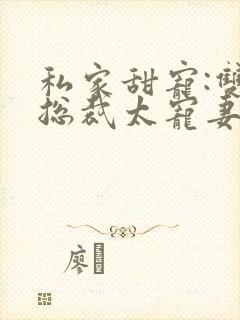 私家甜寵:雙
総裁太寵妻
廖